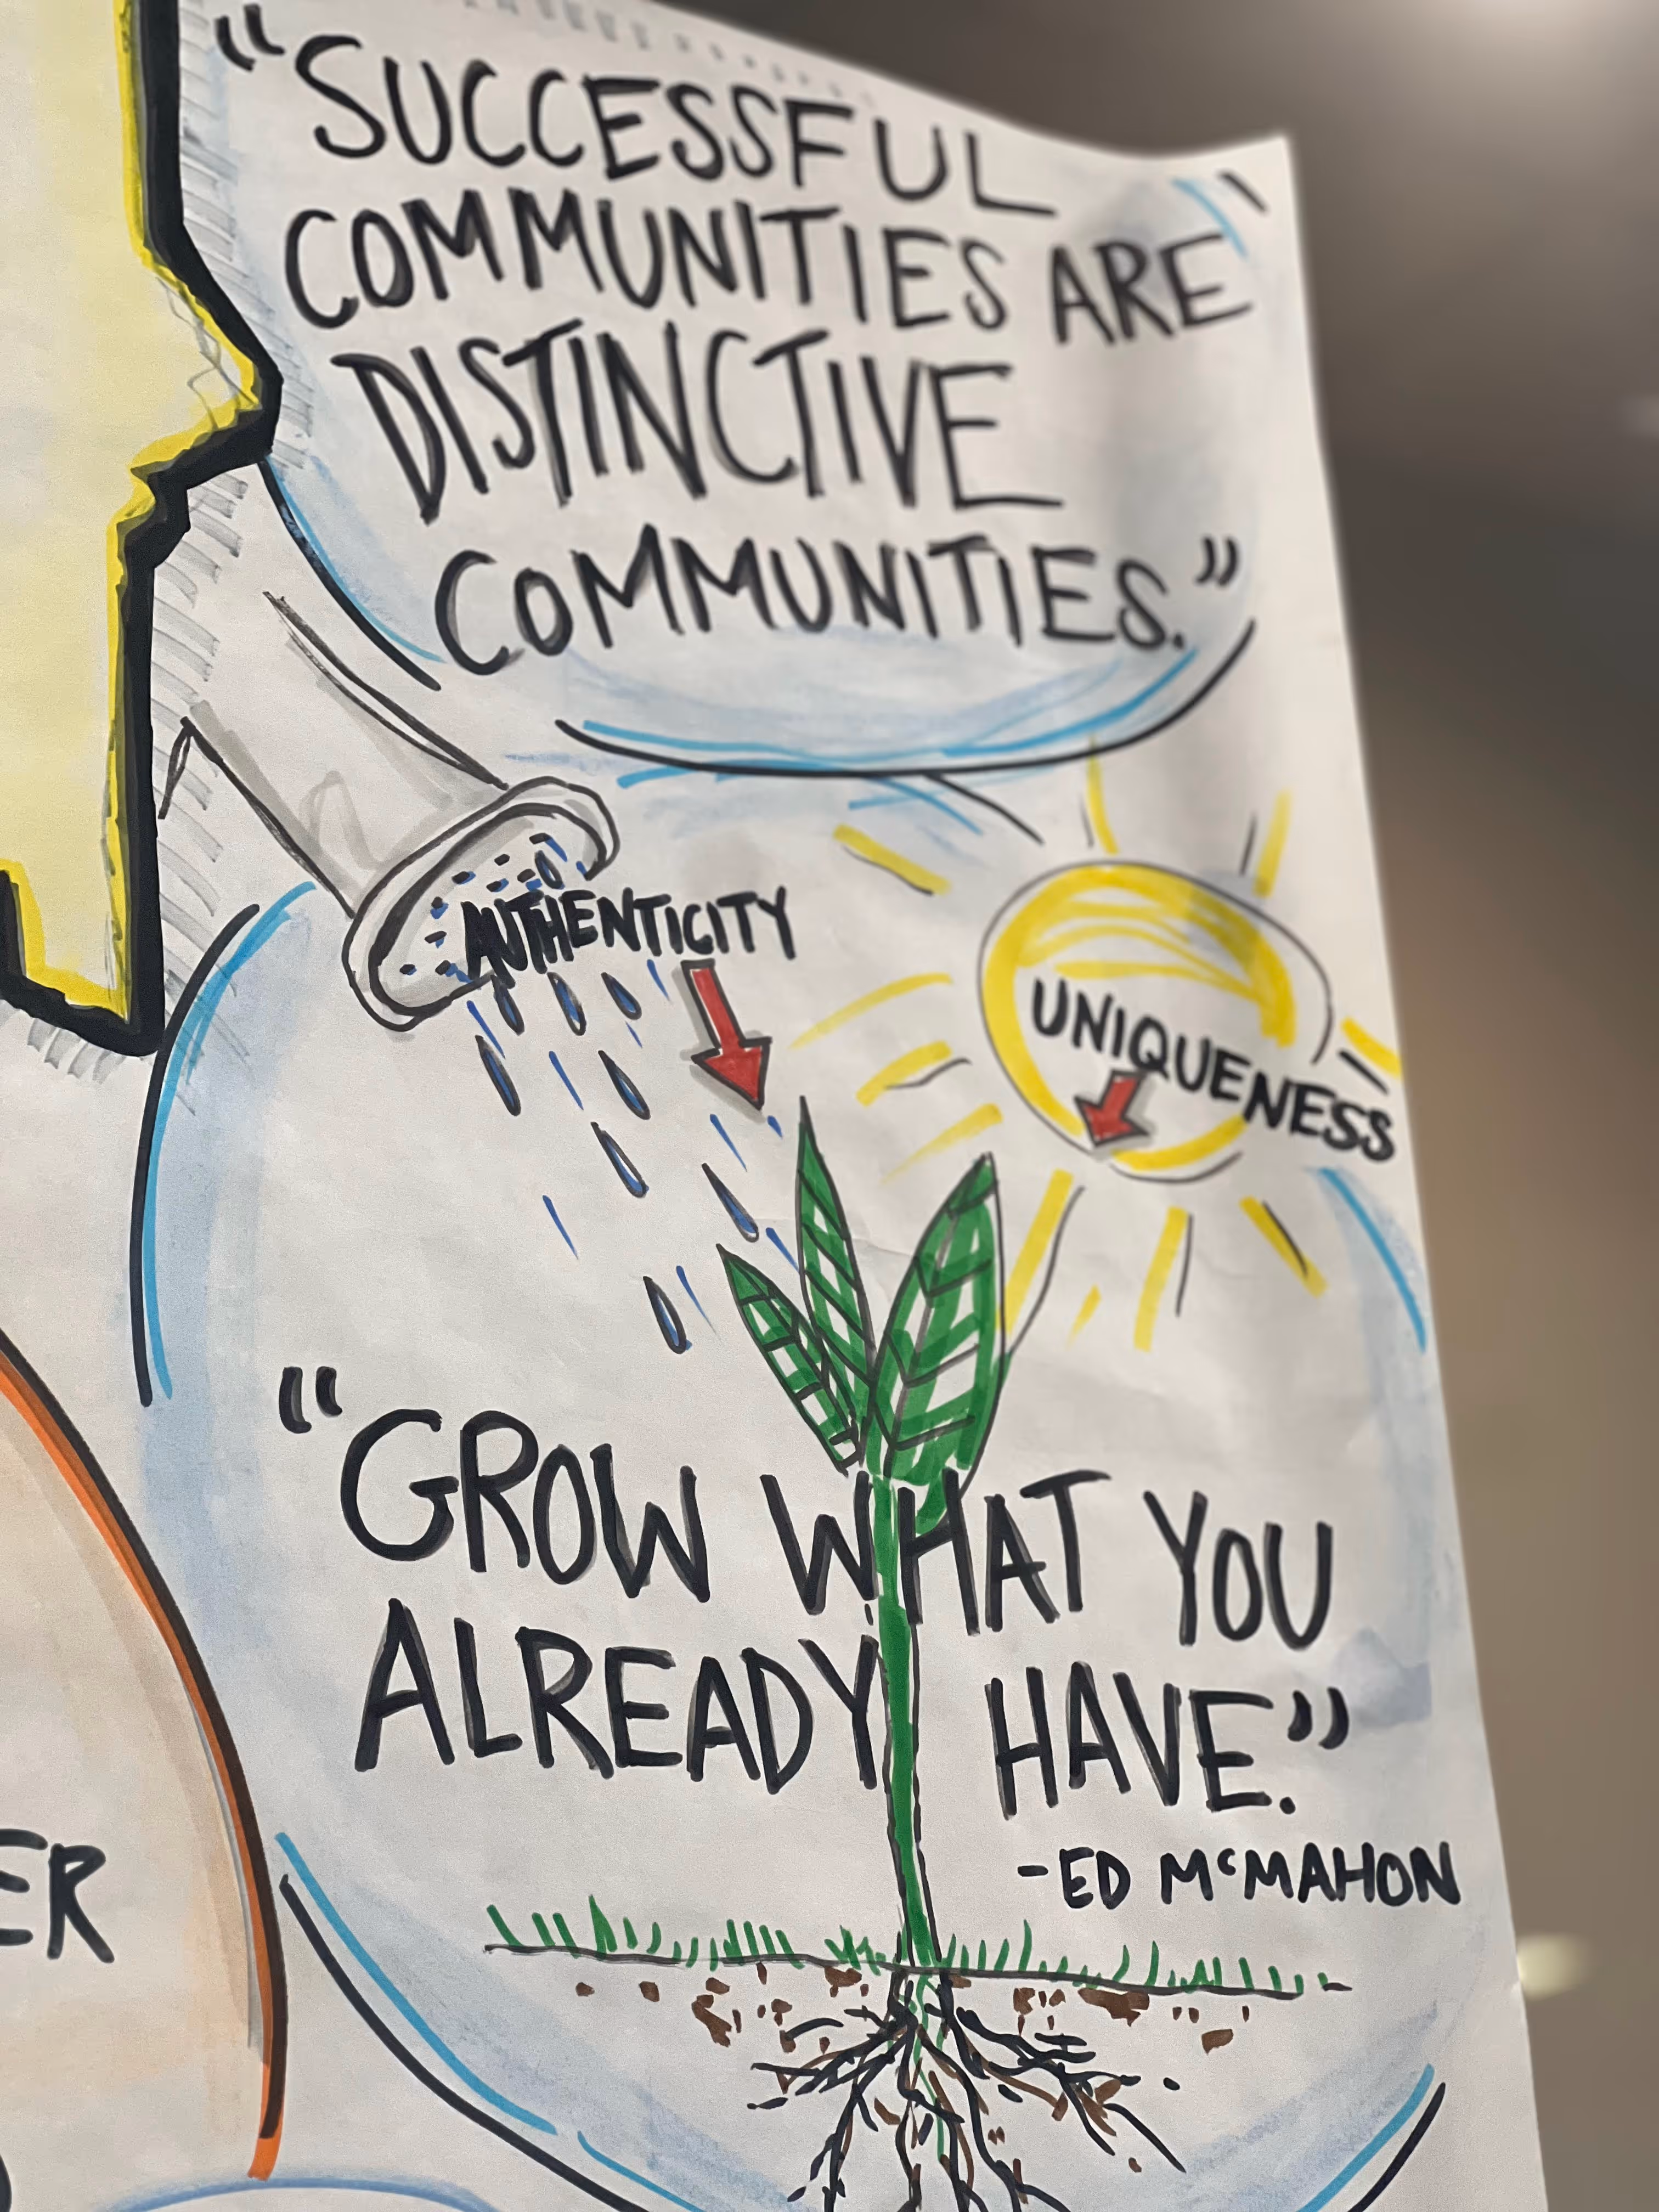 "SUCCESSFUL
COMMUNITIES ARE
DISTINCTIVE
COMMUNITIES."
AUTHENTICITY
UNIQUENESS
"GROW WHAT YOU
ALREADY HAVE."
-ED McMAHON
ER